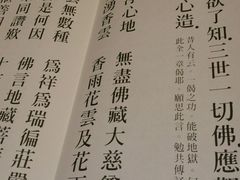 欲了知三世一切佛應觀
心造
昔人有云一偈之功能破地獄
此全章偈耶願思此言勉共傳
有心地 無盡佛藏大慈
湧香雲 香雨花雲及花
雲無數種 為祥為瑞徧莊嚴
是何因 佛言地藏菩
同讚